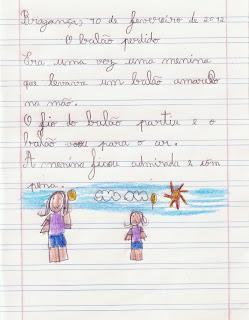 Bragança, 10 de fevereiro de 2012
O balão perdido
Era uma vez uma menina
que levava um balão amarelo
na mão.
O fio do balão partiu e o
balão voou para o ar.
A menina ficou admirada e com
pena.